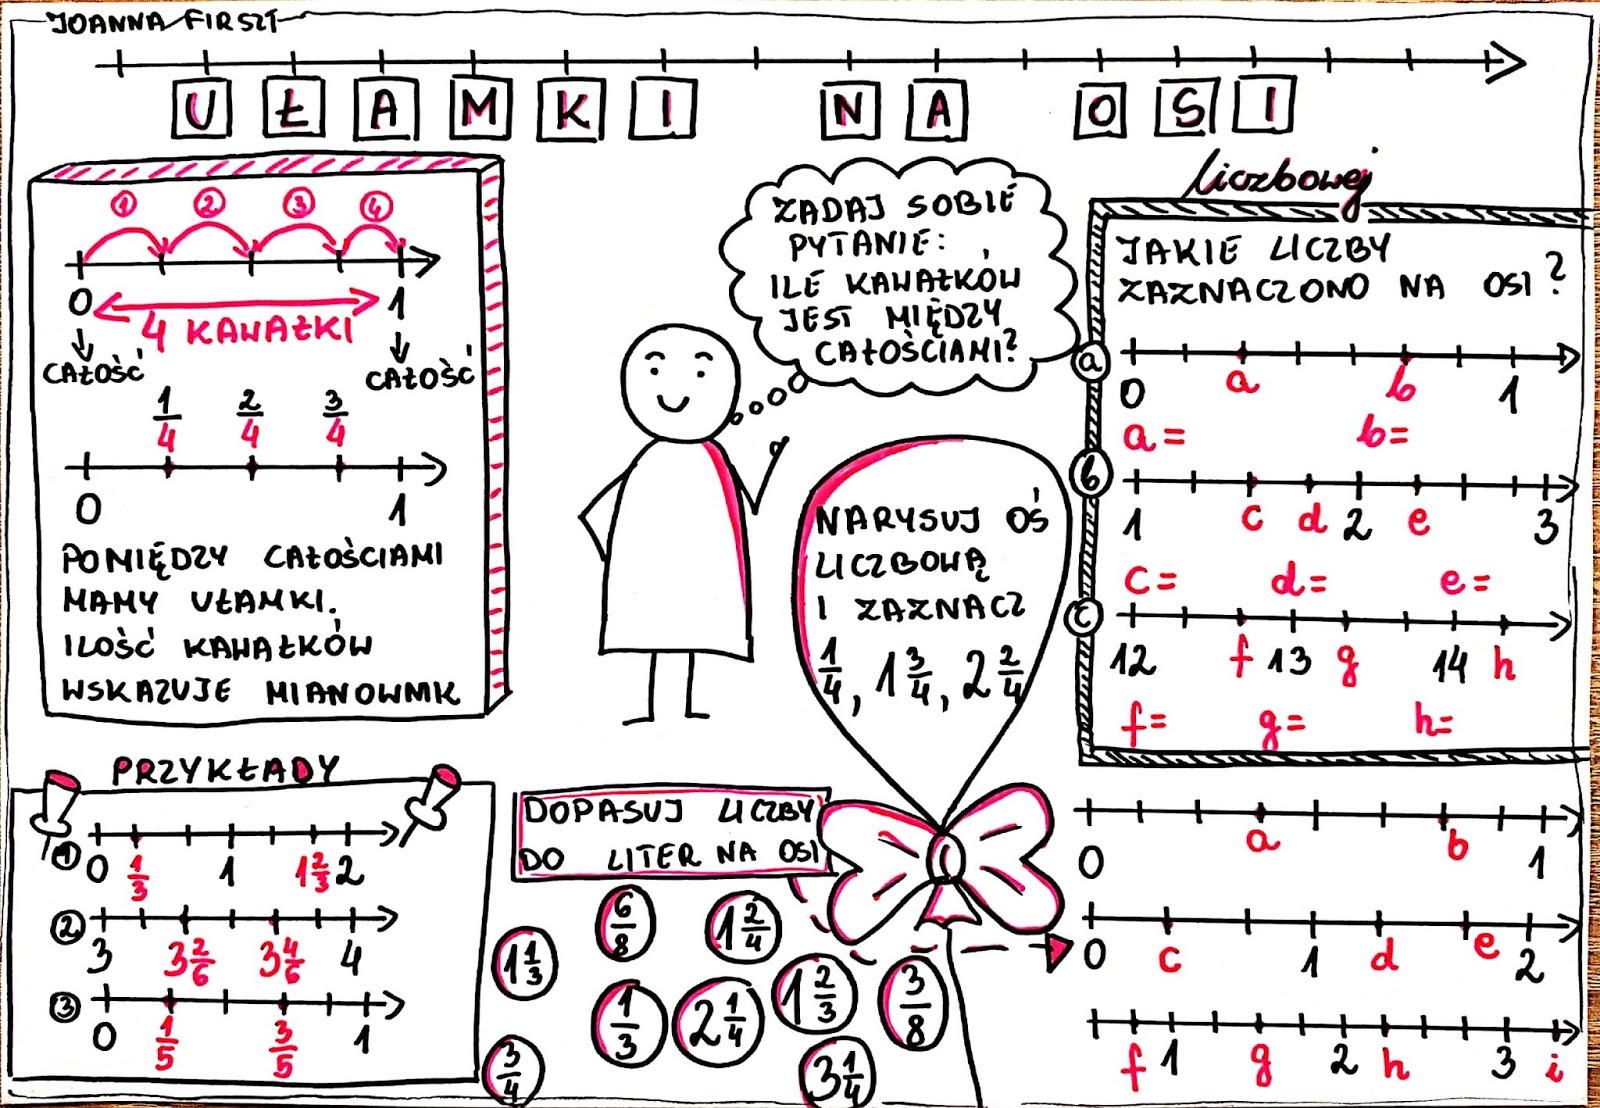 JOANNA FIRSZT
UŁAMKI NA OSI
liczbowej
1 2 3 4
0 1
4 KAWAŁKI
CAŁOŚĆ CAŁOŚĆ
1/4 2/4 3/4
0 1
POMIĘDZY CAŁOŚCIAMI
MAMY UŁAMKI.
ILOŚĆ KAWAŁKÓW
WSKAZUJE MIANOWNIK
ZADAJ SOBIE
PYTANIE:
ILE KAWAŁKÓW
JEST MIĘDZY
CAŁOŚCIAMI?
NARYSUJ OŚ
LICZBOWĄ
I ZAZNACZ
1/4, 1 3/4, 2 2/4
JAKIE LICZBY
ZAZNACZONO NA OSI?
a
0 a b 1
a= b=
b
1 c d 2 e 3
c= d= e=
c
12 f 13 g 14 h
f= g= h=
PRZYKŁADY
1
0 1/3 1 1 2/3 2
2
3 3 2/6 3 4/6 4
3
0 1/5 3/5 1
DOPASUJ LICZBY
DO LITER NA OSI
6/8 1 2/4
1 1/3 1 2/3 3/8
1/3 2 1/4
3/4 3 1/4
0 a b 1
0 c 1 d e 2
f 1 g 2 h 3 i